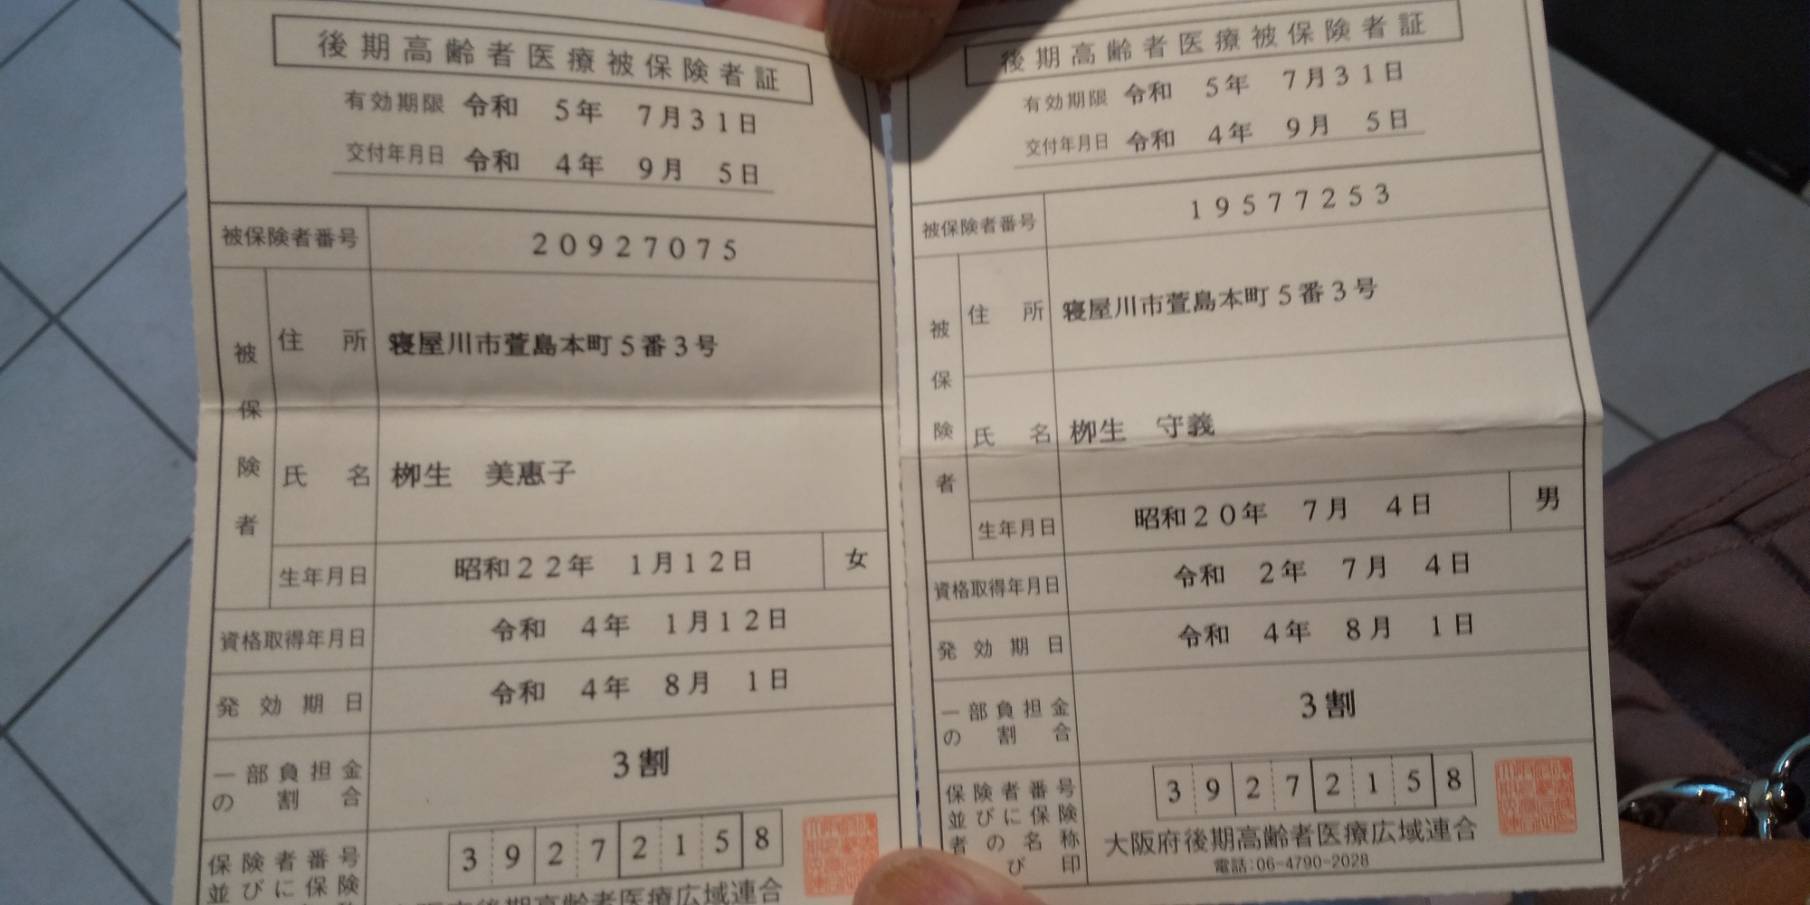 後期高齢者医療被保険者証
有効期限 令和 5年 7月31日
交付年月日 令和 4年 9月 5日
被保険者番号 20927075
被保険者
住所 寝屋川市萱島本町5番3号
氏名 栁生 美惠子
生年月日 昭和22年 1月12日 女
資格取得年月日 令和 4年 1月12日
発効期日 令和 4年 8月 1日
一部負担金の割合 3割
保険者番号並びに保険
39272158
後期高齢者医療広域連合
後期高齢者医療被保険者証
有効期限 令和 5年 7月31日
交付年月日 令和 4年 9月 5日
被保険者番号 19577253
被保険者
住所 寝屋川市萱島本町5番3号
氏名 栁生 守義
生年月日 昭和20年 7月 4日 男
資格取得年月日 令和 2年 7月 4日
発効期日 令和 4年 8月 1日
一部負担金の割合 3割
保険者番号並びに保険者の名称び印
39272158
大阪府後期高齢者医療広域連合
電話:06-4790-2028